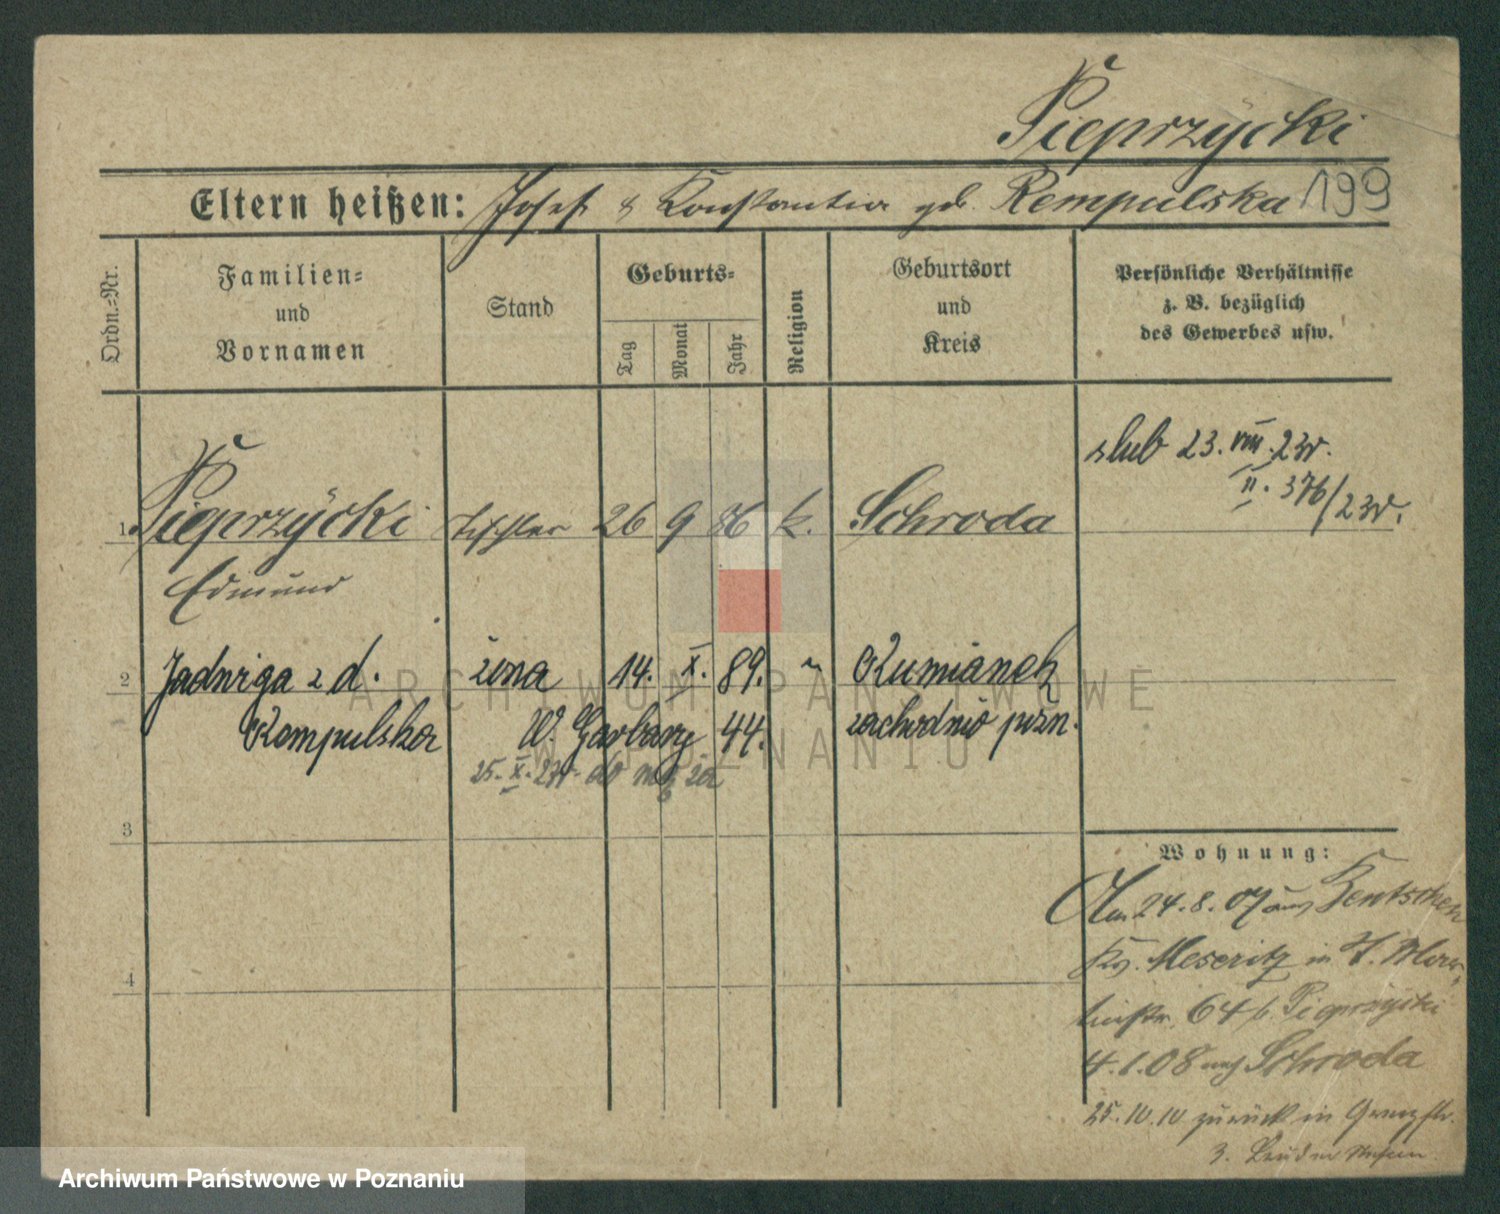 Pieprzÿcki
Eltern heißen: Josef & Konstantia geb. Rempulska 199
Ordn.=Nr.
Familien=
und
Vornamen
Stand
Geburts=
Tag
Monat
Jahr
Religion
Geburtsort
und
Kreis
Persönliche Verhältnisse
z. B. bezüglich
des Gewerbes usw.
slub 23. VIII. 23r.
II. 376/23r.
1 Pieprzÿcki Tischler 26 9 86 k. Schroda
Edmund
2 Jadwiga z d. żona 14. X. 89. "
Rempulska W. Garbary 44. zachodnio pozn.
25. X. 23r. do męża
3
4
Wohnung:
Am 24.8.07 aus Bentschen
Kr. Meseritz in
64 b. Pieprzycki
4.1.08 nach Schroda
25.10.10 zurück in
3.
ARCHIWUM PAŃSTWOWE
W POZNANIU
Archiwum Państwowe w Poznaniu